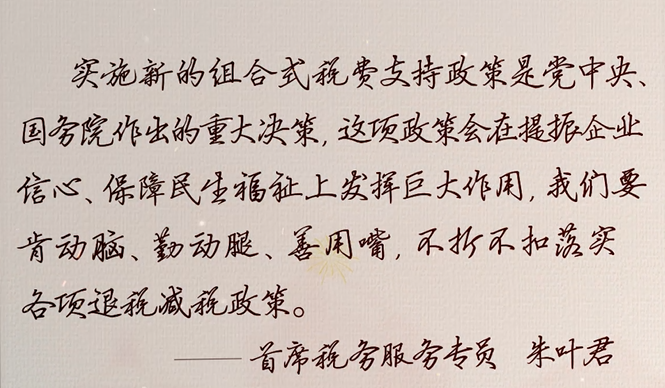 实施新的组合式税费支持政策是党中央、
国务院作出的重大决策,这项政策会在提振企业
信心、保障民生福祉上发挥巨大作用,我们要
肯动脑、勤动腿、善用嘴,不折不扣落实
各项退税减税政策。
——首席税务服务专员 朱叶君